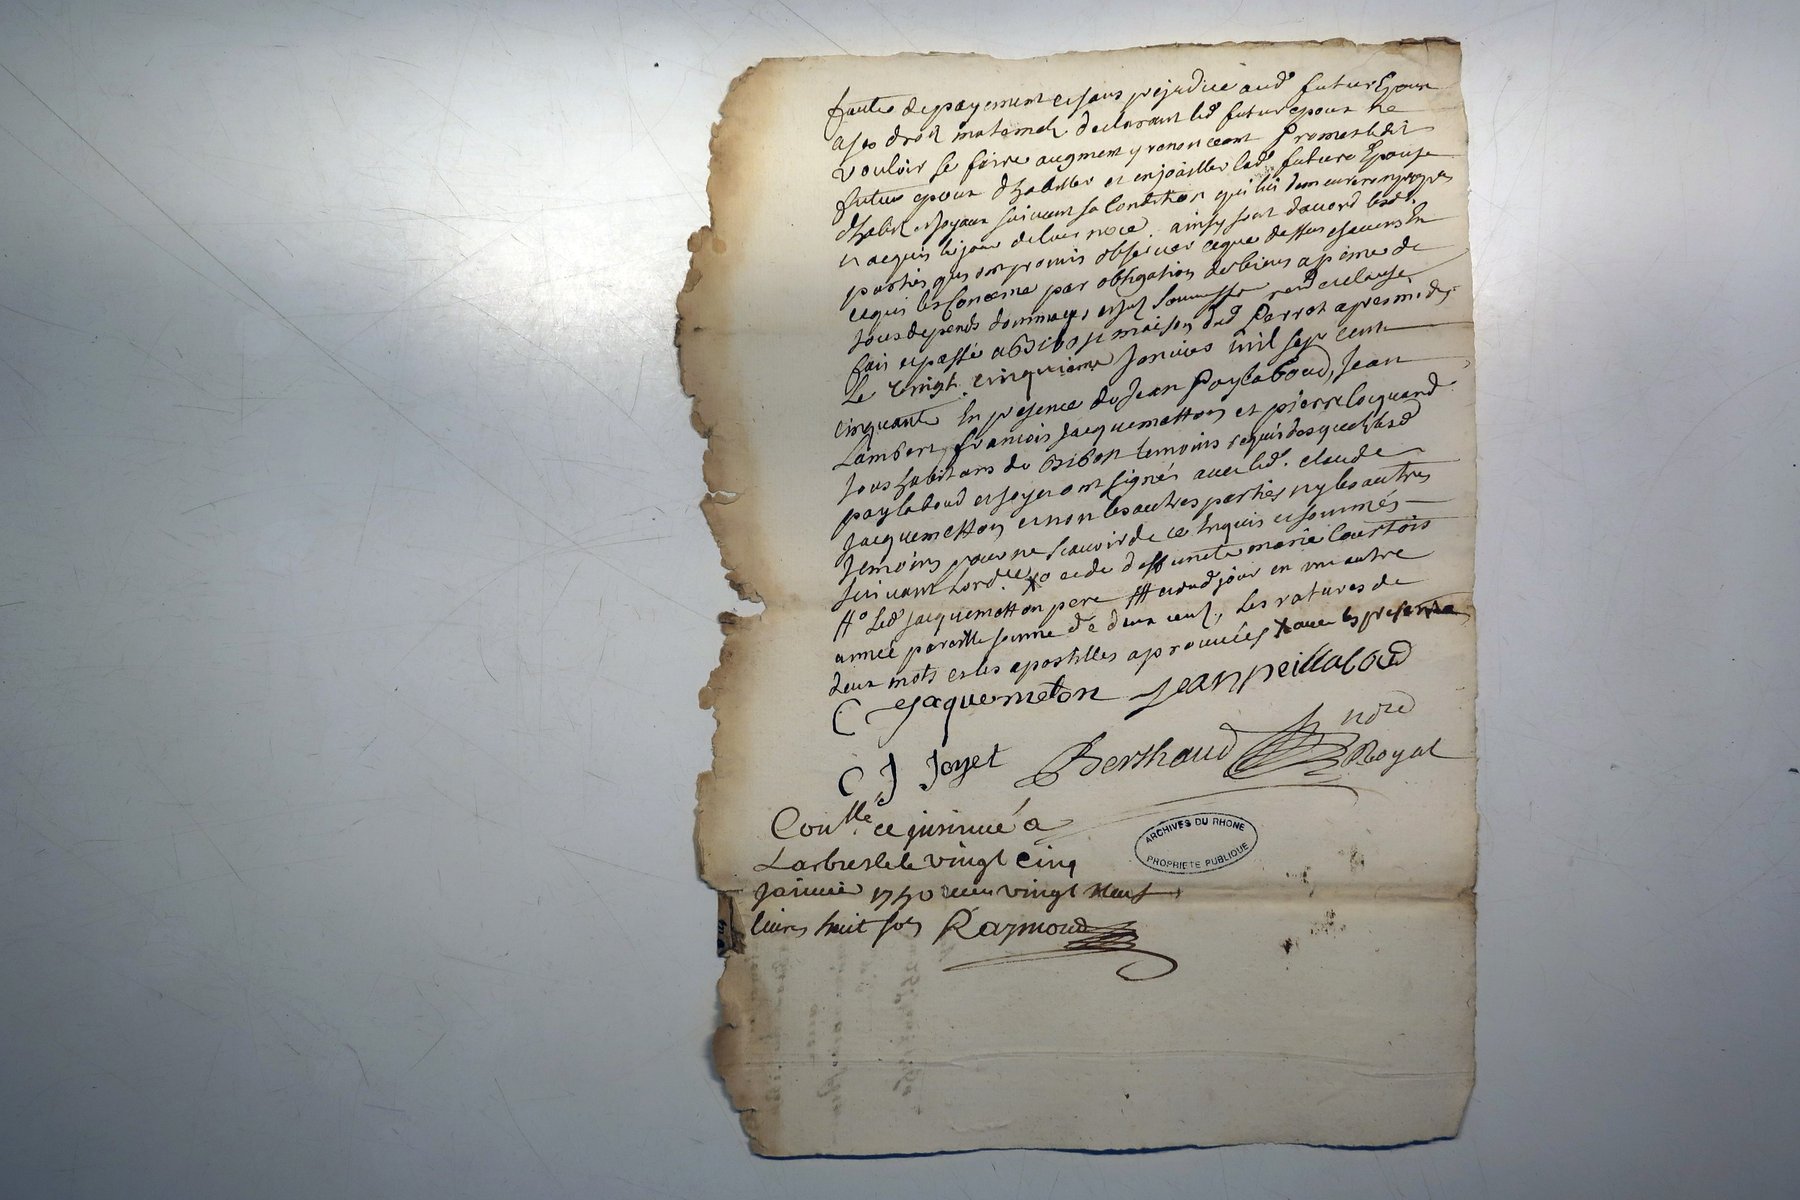 faute de payement et sans prejudice aud. futur Epoux
a ses droit maternels declarant led. futur epoux ne
vouloir se faire augment y renonceant Promet ledit
futur epoux d'habiller et enjoailler lad. future Epouse
d'habit et joyaux suivant sa Condition qui lui demeureront propres
et acquis le jour de leur noce. ainsy sont d'accord lesd.
parties qui ont promis observer ce que dessus chacun En
ce qui les Concerne par obligation de biens a peine de
tous depends dommages soumission rend et clause
fait et passé a Bibost maison dud. Perrot apres midy
Le vingt cinquieme Janvier mil sept cent
cinquante En presence de Jean Paylaboud, Jean
Lambert, francois Jacquemetton et pierre Cocquard
tous habitans de Bibost temoins requis desquels lesd
paylaboud et Joyet ont signés avec led. claude
Jacquemetton et non les autres parties ny les autres
temoins pour ne scavoir de ce Enquis et sommés
suivant Lord.ce X et de deffuncte marie Courtois
# Led. Jacquemetton pere ## jour en un autre
année pareille somme de deux cent, Les ratures de
deux mots et les apostilles aprouvées X avec les presentes
C Jaquemeton Jean peillaboud
C J Joyet Berthaud no.re Royal
Con.llé et insinué à
Larbresle le vingt cinq
Janvier 1750 recu vingt neuf
livres huit sols Raymond
ARCHIVES DU RHONE
PROPRIETE PUBLIQUE